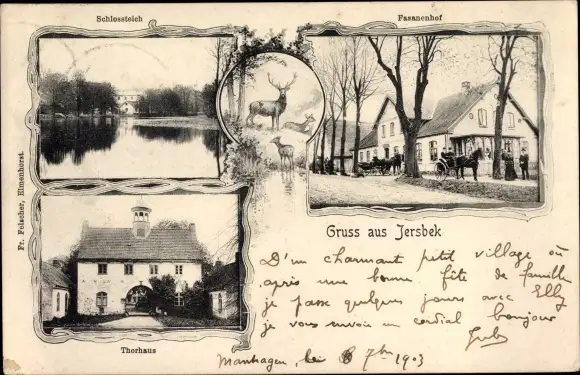 Schlossteich
Fasanenhof
Fr. Felscher, Elmenhorst
Gruss aus Jersbek
Thorhaus
D'un charmant petit village où
après une bonne fête de famille
je passe quelques jours avec Elly
je vous envoie un cordial bonjour
Manhagen, le 7bre 1903